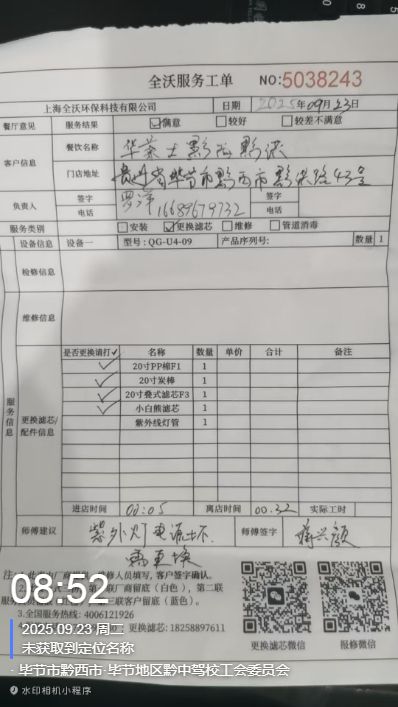 全沃服务工单 NO:5038243
上海全沃环保科技有限公司 日期 2025年09月23日
餐厅意见 服务结果 ☑满意 □较好 □较差不满意
客户信息 餐饮名称 华莱士黔西黔
门店地址 贵州省毕节市黔西市黔 路43号
负责人 签字 罗萍 签字
电话 16689679732 电话
服务类别 □安装 ☑更换滤芯 □维修 □管道消毒
设备信息 设备一 型号:QG-U4-09 产品序列号: 数量 1
检修信息
维修信息
服务信息
更换滤芯/配件信息
是否更换请打✓ 名称 数量 单价 合计 备注
✓ 20寸PP棉F1 1
✓ 20寸炭棒 1
✓ 20寸叠式滤芯F3 1
✓ 小白熊滤芯 1
紫外线灯管 1
进店时间 00:05 离店时间 00.32 实际工时
师傅建议 紫外灯电源坏 师傅签字
需更换
维修人员填写,客户签字确认。
厂商留底(蓝色),第二联
联客户留底(蓝色)。
3.全国服务热线:4006121926
更换滤芯:18258897611
更换滤芯微信 报修微信
08:52
2025.09.23 周二
未获取到定位名称
·毕节市黔西市·毕节地区黔中驾校工会委员会
水印相机小程序